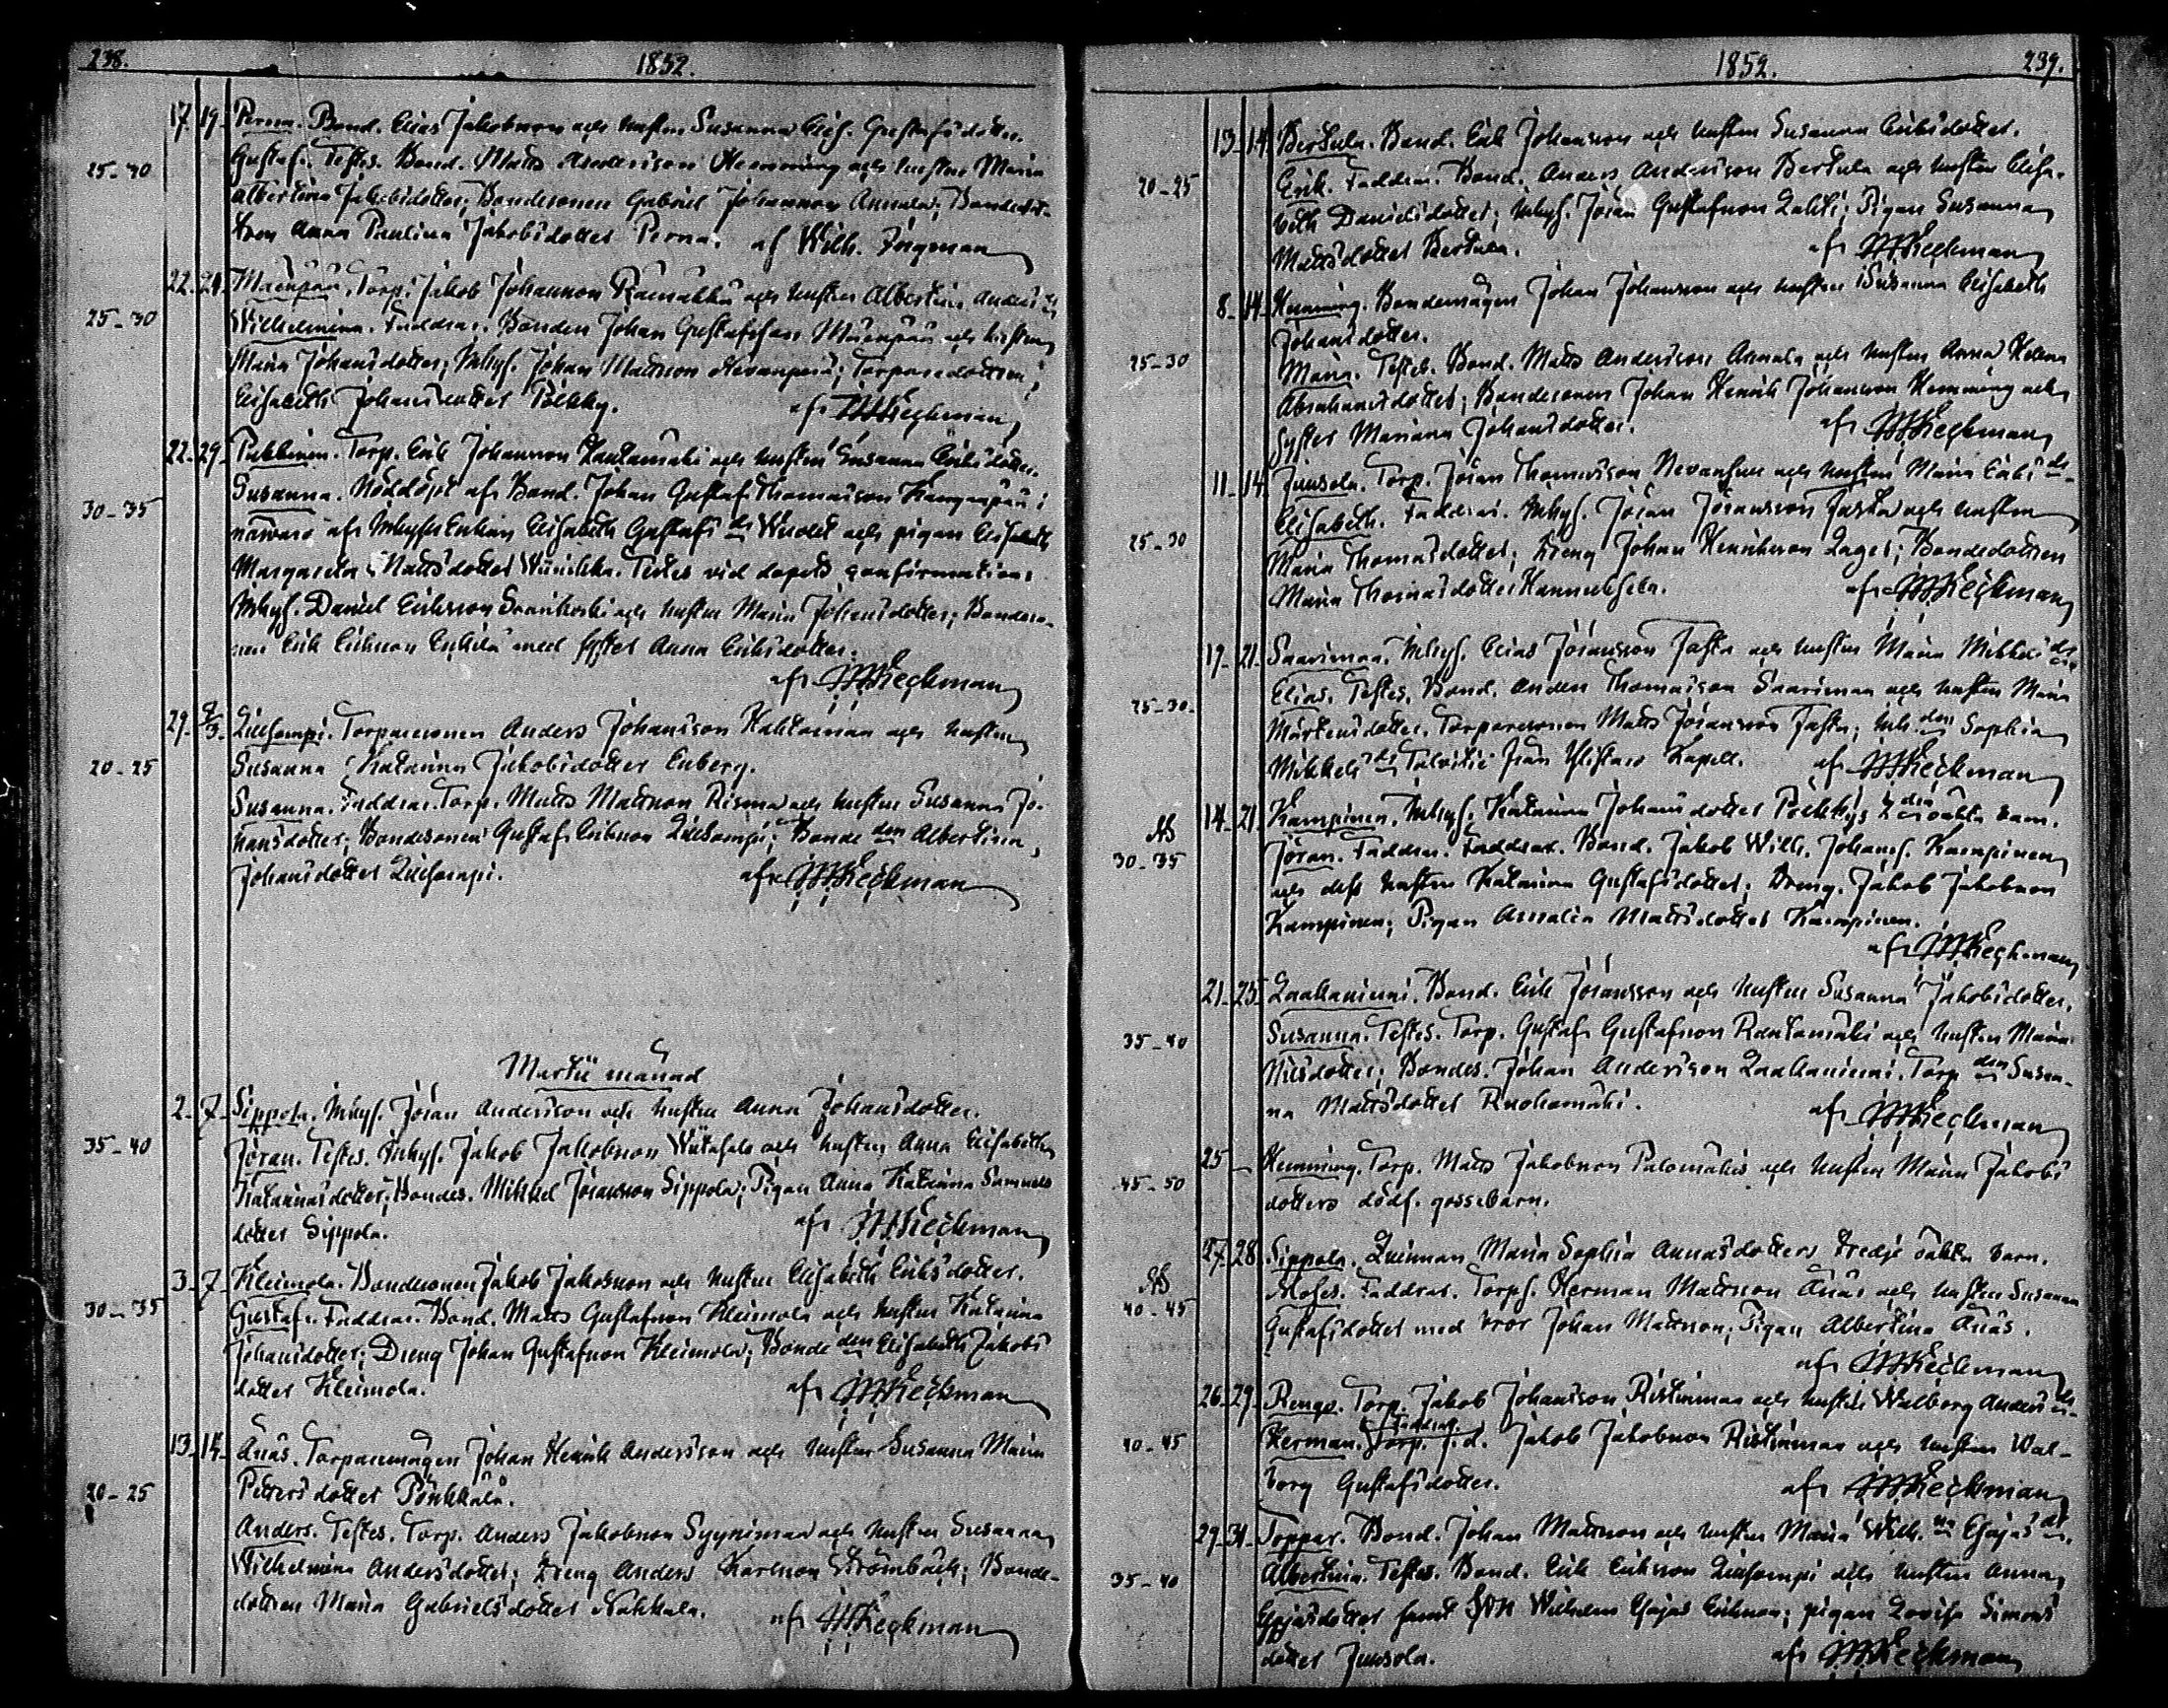 238. 1852.
17. 19. Perna. Bond. Elias Jakobsson och hustru Susanna Elis. Gustafsdotter.
25-30 Gustaf. Testes. Bond. Matts Andersson Hemming och hustru Maria
Albertina Jakobsdotter; Bondesonen Gabriel Johansson Annala; Bondedot-
tren Anna Paulina Jakobsdotter Perna. af Wilh. Forsman
22. 24. Mäenpää. Torp. Jakob Johansson Rämäkkä och hustru Albertina Anders ds
25-30 Wilhelmina. Faddrar. Bonden Johan Gustafsson Mäenpää och hustru
Maria Johansdotter; Inhys. Johan Mattsson Hevanperä; Torparedottren
Elisabeth Johansdotter Pölkky. af Heckman
22. 29. Pukkinen. Torp. Erik Johansson Rautamäki och hustru Susanna Eriksdotter.
30-35 Susanna. Nöddöpt af Bond. Johan Gustaf Thomasson Kangenpää i
närvaro af Inhysesenkan Elisabeth Gustafs dr och pigan Elisabeth
Margareta Mattsdotter. Testes vid dopets confirmation:
Inhys. Daniel Eriksson Svanikoski och hustru Maria Johansdotter; Bondeso-
nen Erik Eriksson med syster Anna Eriksdotter.
af Heckman
29. 7/3. Luhtanpi. Torparesonen Anders Johansson Kaktaman och hustru
20-25 Susanna Katarina Jakobsdotter Enberg.
Susanna. Faddrar. Torp. Matts Mattsson Risma och hustru Susanna Jo-
hansdotter; Bondesonen Gustaf Eriksson; Bonde den Albertina
Johansdotter. af Heckman
Martii månad
2. 7. Sippola. Inhys. Jöran Andersson och hustru Anna Johansdotter.
35-40 Jöran. Testes. Inhys. Jakob Jakobsson och hustru Anna Elisabeth
Katarinasdotter; Bondes. Mikkel Jöransson Sippola; Pigan Anna Katarina Samuels
dotter Sippola. af Heckman
3. 7. Kleimola. Bondesonen Jakob Jakobsson och hustru Elisabeth Eriksdotter.
30-35 Gustaf. Faddrar. Bond. Matts Gustafsson Kleimola och hustru Katarina
Johansdotter; Dreng Johan Gustafsson Kleimola; Bonde den Elisabeth Jakobs
dotter Kleimola. af Heckman
13. 14. Anäs. Torparemågen Johan Henrik Andersson och hustru Susanna Maria
20-25 Petters dotter Pönkkälä.
Anders. Testes. Torp. Anders Jakobsson Syynimaa och hustru Susanna
Wilhelmina Andersdotter; Dreng Anders Karlsson Strömbäck; Bonde-
dottren Maria Gabrielsdotter Nahkala. af Heckman
1852. 239.
13. 14. Bertula. Bond. Erik Johansson och hustru Susanna Eriksdotter.
20-25 Erik. Faddrar. Bond. Anders Andersson Bertula och hustru Elisa-
beth Danielsdotter; Inhys. Jöran Gustafsson Lahti; Pigan Susanna
Mattsdotter Bertula. af Heckman
8. 14. Hemming. Bondemågen Johan Johansson och hustru Susanna Elisabeth
Johansdotter.
25-30 Maria. Testes. Bond. Matts Andersson Annala och hustru Anna Helena
Abrahamsdotter; Bondesonen Johan Henrik Johansson Hemming och
syster Mariana Johansdotter. af Heckman
11. 14. Junsola. Torp. Jöran Thomasson och hustru Maria Eriks dr
25-30 Elisabeth. Faddrar. Inhys. Jöran Jöransson Jaska och hustru
Maria Thomasdotter; Dreng Johan Henriksson Lager; Bondedottren
Maria Thomasdotter Hannuksela. af Heckman
19. 21. Saarimaa. Inhys. Elias Jöransson Jaska och hustru Maria Mikkels dr
25-30 Elias. Testes. Bond. Anders Thomasson Saarimaa och hustru Maria
Mårtensdotter. Torparesonen Matts Jöransson Jaska; Inh. den Sophia
Mikkels dr Talvitie från Ylistaro Kapell. af Heckman
14. 21. Kampinen. Inhys. Katarina Johansdotter Pölkkys 2 dra oäkta barn.
30-35 Jöran. Faddrar. Faddrar. Bond. Jakob Wilh. Johanss. Kampinen
och dess hustru Katarina Gustafsdotter; Dreng. Jakob Jakobsson
Kampinen; Pigan Amalia Mattsdotter Kampinen.
af Heckman
21. 25. Laakaniemi. Bond. Erik Jöransson och hustru Susanna Jakobsdotter.
35-40 Susanna. Testes. Torp. Gustaf Gustafsson Rautamäki och hustru Maria
Nilsdotter; Bondes. Johan Andersson Laakaniemi. Torp den Susan-
na Mattsdotter Ruohomäki. af Heckman
25 — Hemming. Torp. Matts Jakobsson Palomäkis och hustru Maria Jakobs
45-50 dotters dödf. gossebarn.
27. 28. Sippola. Quinnan Maria Sophia Annasdotters tredje oäkta barn.
40-45 Moses. Faddrar. Torp. Herman Mattsson Anäs och hustru Susanna
Gustafsdotter med bror Johan Mattsson; Pigan Albertina Anäs.
af Heckman
26. 29. Rengo. Torp. Jakob Johansson Ristimaa och hustru Walborg Anders dr.
40-45 Herman. Faddrar. Torp. f.d. Jakob Jakobsson Ristimaa och hustru Wal-
borg Gustafsdotter. af Heckman
29. 31. Toppar. Bond. Johan Mattsson och hustru Maria Wilh. na Esajas dr.
35-40 Albertina. Testes. Bond. Erik Eriksson och hustru Anna
Esajasdotter samt Son Wilhelm Esajas Eriksson; pigan Lovisa Simons
dotter Junsola. af Heckman